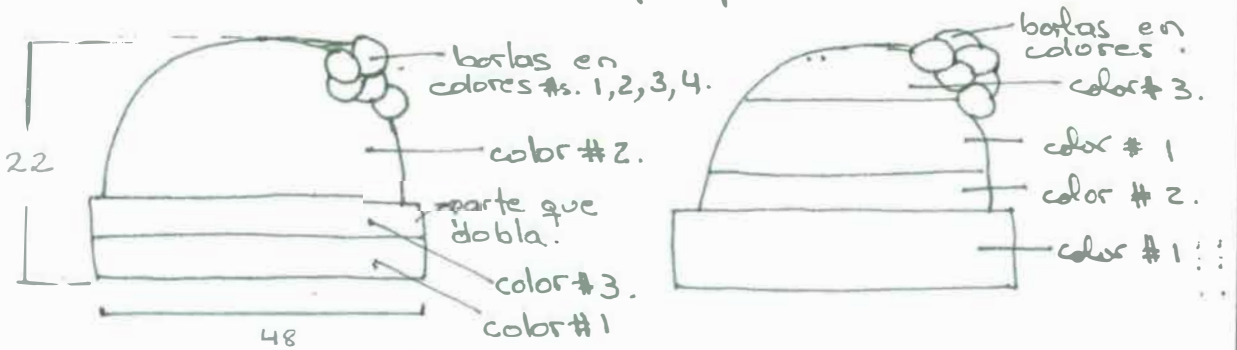 borlas en
colores #s. 1,2,3,4.
22
color #2.
parte que
dobla.
color #3.
color #1
48
borlas en
colores.
color # 3.
color # 1
color # 2.
color # 1